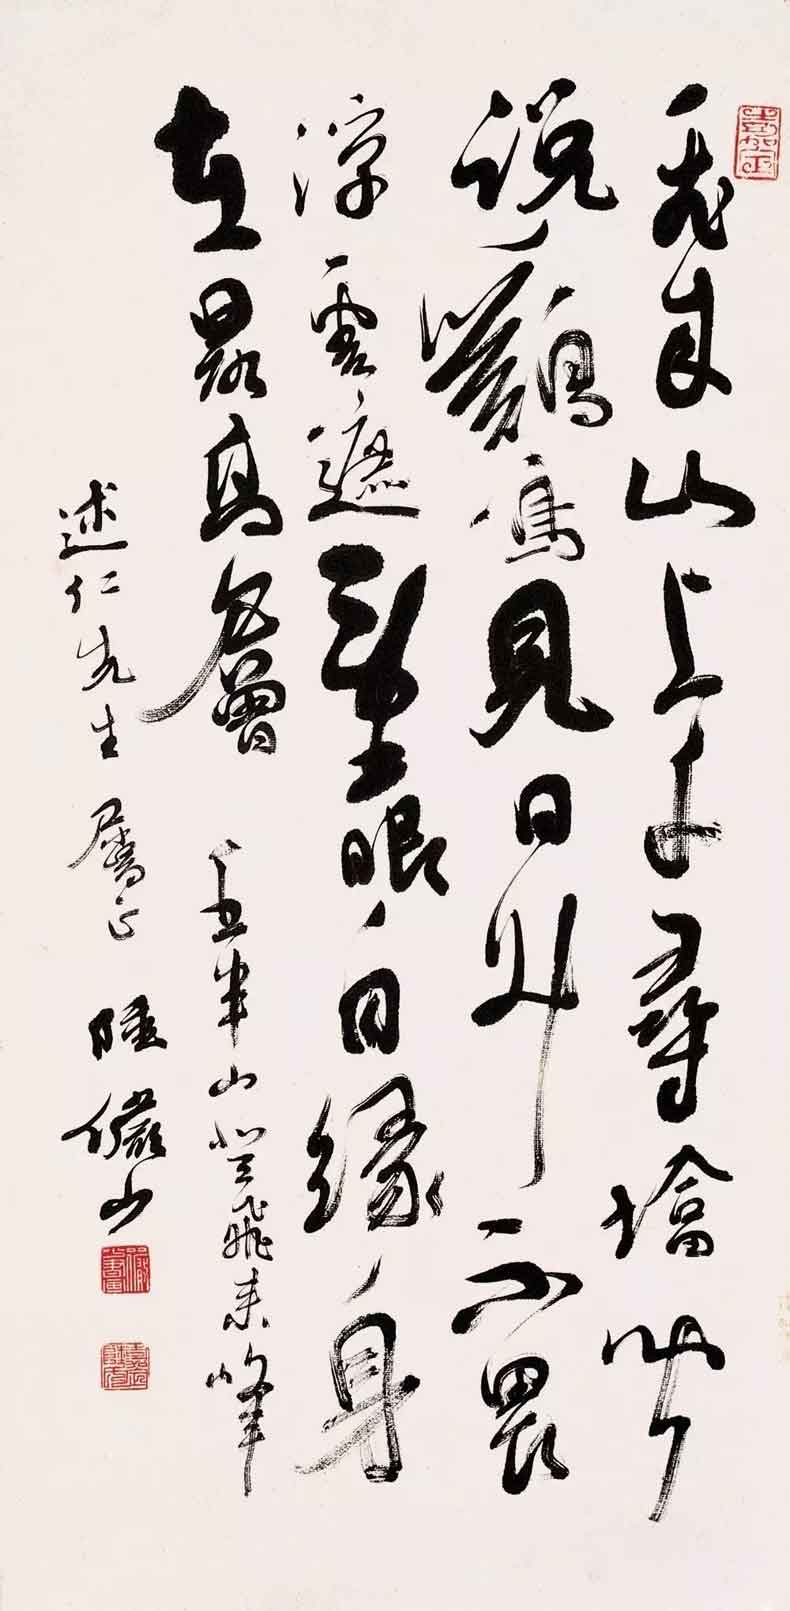 飛來山上千尋墖聞
說鷄鳴見日升不畏
浮雲遮望眼自緣身
在最高層 王半山登飛來峰
述仁先生屬正 陸儼少